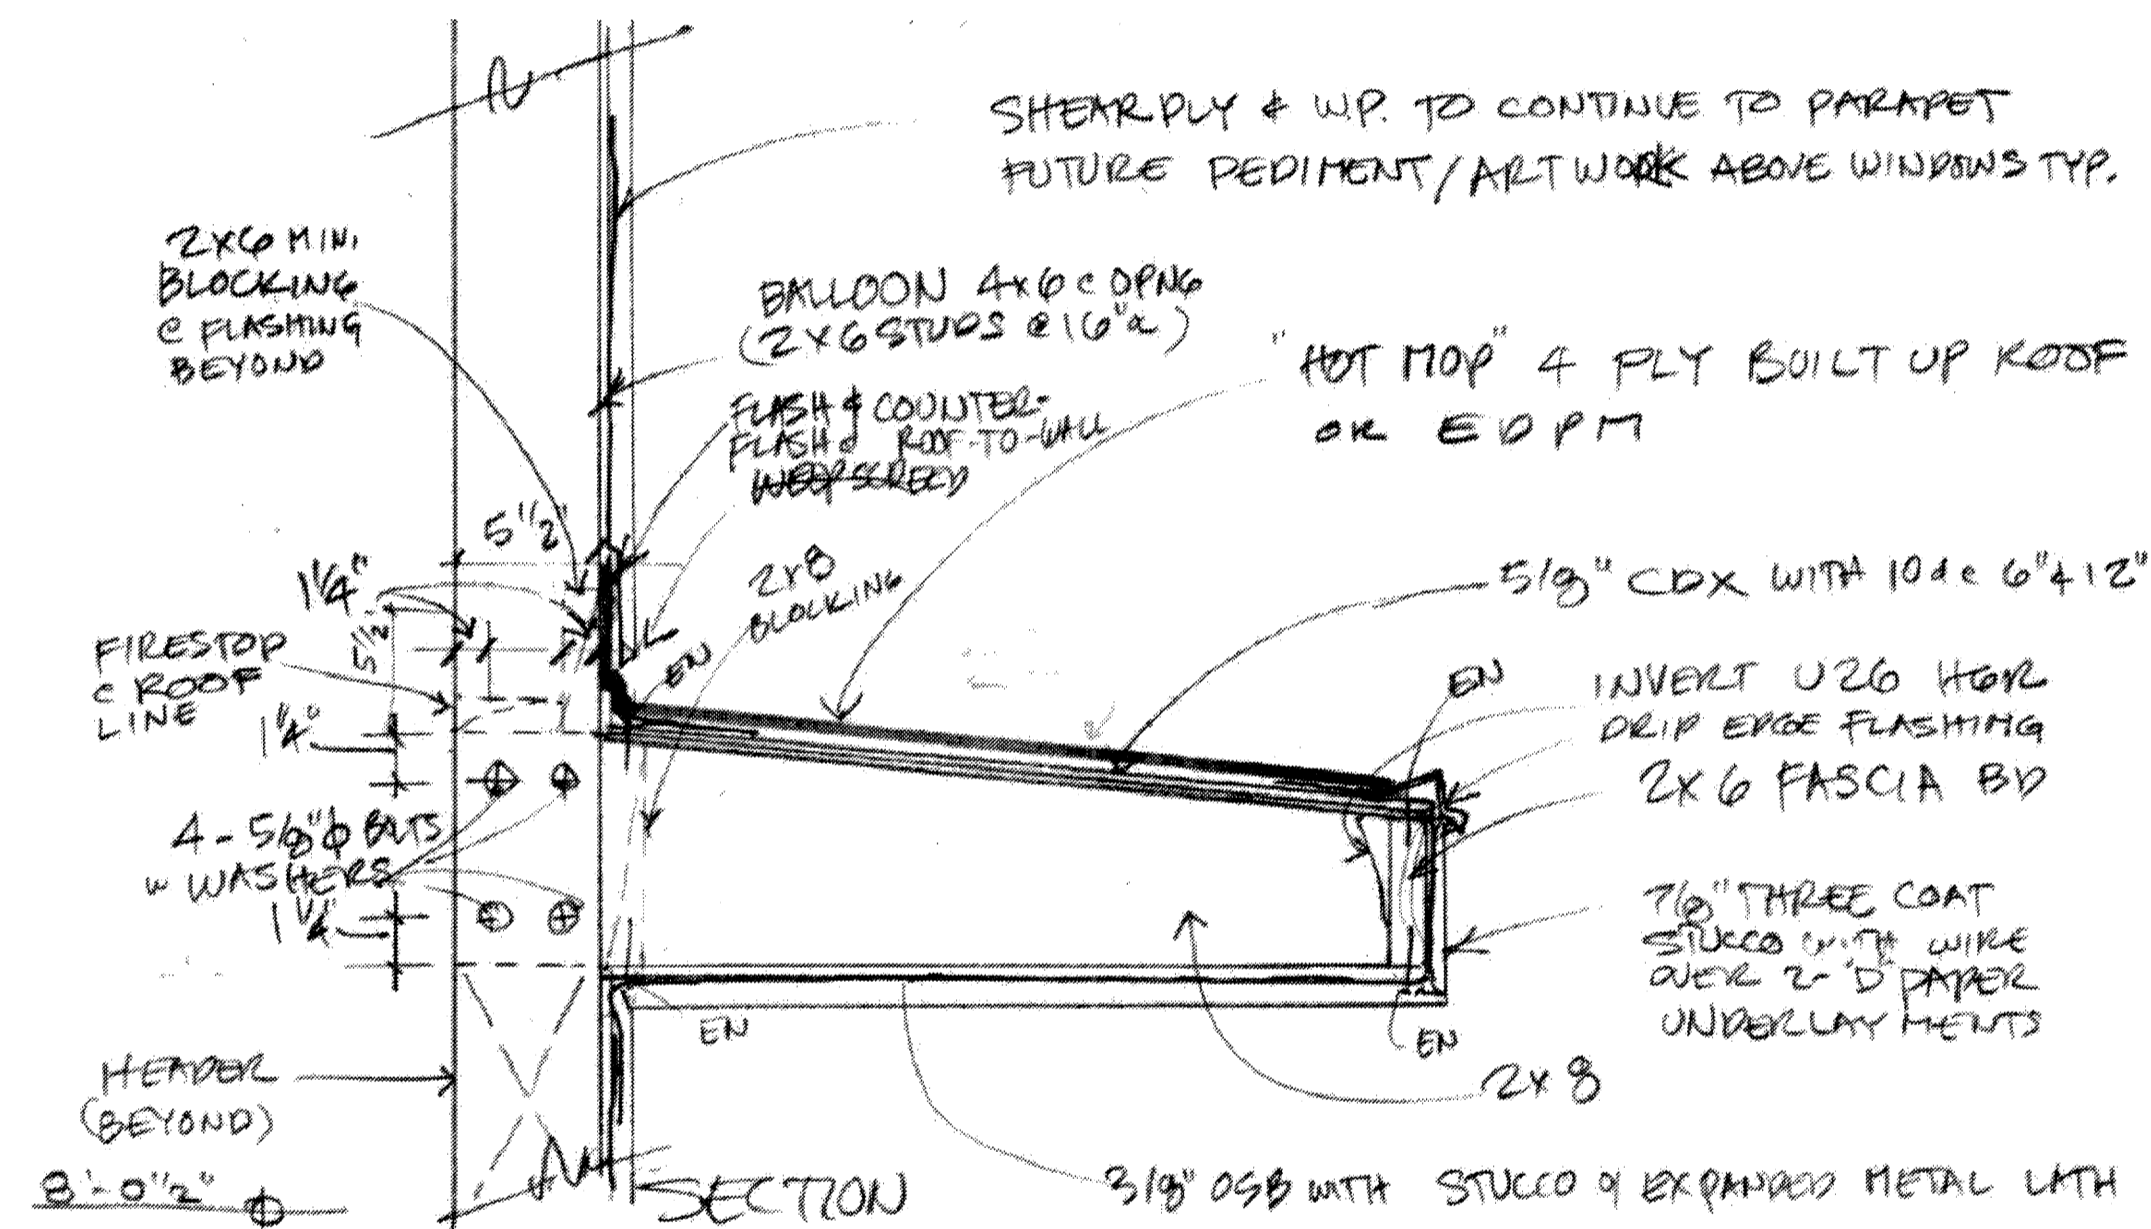 SHEAR PLY & W.P. TO CONTINUE TO PARAPET
FUTURE PEDIMENT/ARTWORK ABOVE WINDOWS TYP.
2X6 MIN.
BLOCKING
@ FLASHING
BEYOND
BALLOON 4x6 @ OPNG
(2X6 STUDS @ 16"oc)
FLASH & COUNTER-
FLASH @ ROOF-TO-WALL
WEEPSCREED
"HOT MOP" 4 PLY BUILT UP ROOF
OR EDPM
5 1/2"
1 1/4"
5 1/2"
2x8
BLOCKING
5/8" CDX WITH 10d @ 6" & 12"
FIRESTOP
@ ROOF
LINE
EN
EN
INVERT U26 HGR
DRIP EDGE FLASHING
2X6 FASCIA BD
1 1/4"
4 - 5/8"φ BOLTS
w WASHERS
1 1/4"
7/8" THREE COAT
STUCCO WITH WIRE
OVER 2-"D" PAPER
UNDERLAYMENTS
EN
EN
2x8
HEADER
(BEYOND)
8'-0 1/2"
SECTION
3/8" OSB WITH STUCCO & EXPANDED METAL LATH